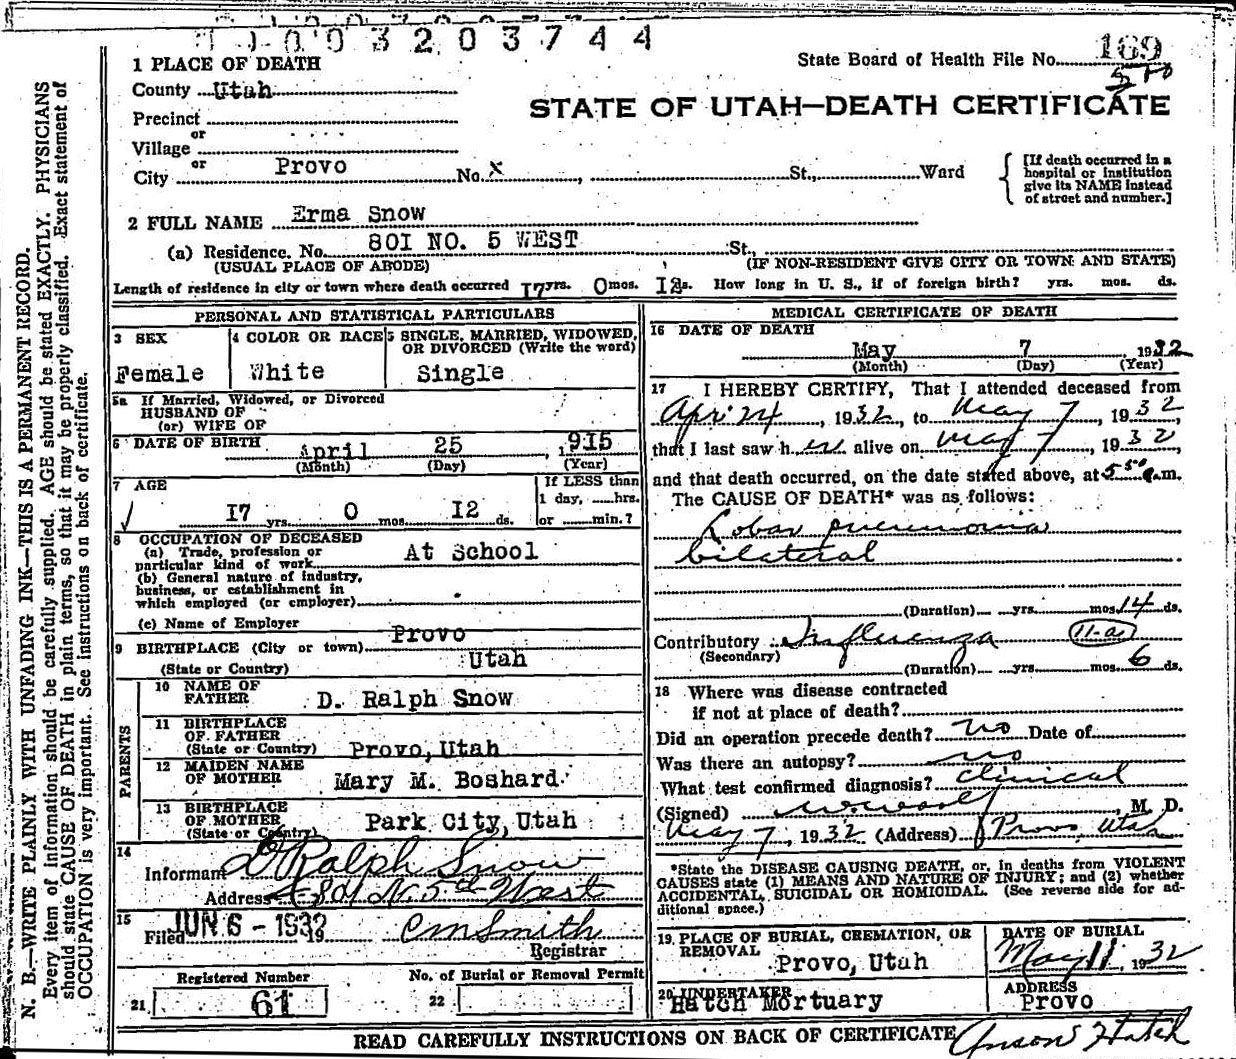 003203744
State Board of Health File No. 169
1 PLACE OF DEATH
County Utah
STATE OF UTAH—DEATH CERTIFICATE
Precinct
or
Village
or
City Provo No. X , St., Ward
[If death occurred in a hospital or institution give its NAME instead of street and number.]
2 FULL NAME Erma Snow
(a) Residence. No. 80I NO. 5 WEST St.,
(USUAL PLACE OF ABODE) (IF NON-RESIDENT GIVE CITY OR TOWN AND STATE)
Length of residence in city or town where death occurred I7 yrs. 0 mos. I2 ds. How long in U. S., if of foreign birth? yrs. mos. ds.
N. B.—WRITE PLAINLY WITH UNFADING INK—THIS IS A PERMANENT RECORD.
Every item of Information should be carefully supplied. AGE should be stated EXACTLY. PHYSICIANS
should state CAUSE OF DEATH in plain terms, so that it may be properly classified. Exact statement of
OCCUPATION is very important. See instructions on back of certificate.
PERSONAL AND STATISTICAL PARTICULARS
3 SEX
Female
4 COLOR OR RACE
White
5 SINGLE, MARRIED, WIDOWED,
OR DIVORCED (Write the word)
Single
5a If Married, Widowed, or Divorced
HUSBAND OF
(or) WIFE OF
6 DATE OF BIRTH April 25 , 1915
(Month) (Day) (Year)
7 AGE
I7 yrs. 0 mos. I2 ds.
If LESS than
1 day, hrs.
or min.?
8 OCCUPATION OF DECEASED
(a) Trade, profession or
particular kind of work At School
(b) General nature of industry,
business, or establishment in
which employed (or employer)
(c) Name of Employer
9 BIRTHPLACE (City or town) Provo
(State or Country) Utah
PARENTS
10 NAME OF
FATHER D. Ralph Snow
11 BIRTHPLACE
OF FATHER
(State or Country) Provo, Utah
12 MAIDEN NAME
OF MOTHER Mary M. Boshard
13 BIRTHPLACE
OF MOTHER
(State or Country) Park City, Utah
14
Informant D Ralph Snow
Address 801 N. 5th West
15
Filed JUN 6 - 1932 19 C M Smith
Registrar
Registered Number
21 61
No. of Burial or Removal Permit
22
MEDICAL CERTIFICATE OF DEATH
16 DATE OF DEATH
May 7 1932
(Month) (Day) (Year)
17 I HEREBY CERTIFY, That I attended deceased from
Apr 24, 1932, to May 7, 1932,
that I last saw h er alive on May 7, 1932,
and that death occurred, on the date stated above, at 5 50 a.m.
The CAUSE OF DEATH* was as follows:
Lobar pneumonia
bilateral
(Duration) yrs. mos. 14 ds.
Contributory Influenza 11-a
(Secondary)
(Duration) yrs. mos. 6 ds.
18 Where was disease contracted
if not at place of death?
Did an operation precede death? no Date of
Was there an autopsy? no
What test confirmed diagnosis? clinical
(Signed) , M. D.
May 7, 1932 (Address) Provo Utah
*State the DISEASE CAUSING DEATH, or, in deaths from VIOLENT
CAUSES state (1) MEANS AND NATURE OF INJURY; and (2) whether
ACCIDENTAL, SUICIDAL OR HOMICIDAL. (See reverse side for ad-
ditional space.)
19 PLACE OF BURIAL, CREMATION, OR
REMOVAL
Provo, Utah
DATE OF BURIAL
May 11, 1932
20 UNDERTAKER
Hatch Mortuary
ADDRESS
Provo
READ CAREFULLY INSTRUCTIONS ON BACK OF CERTIFICATE
Anson Hatch